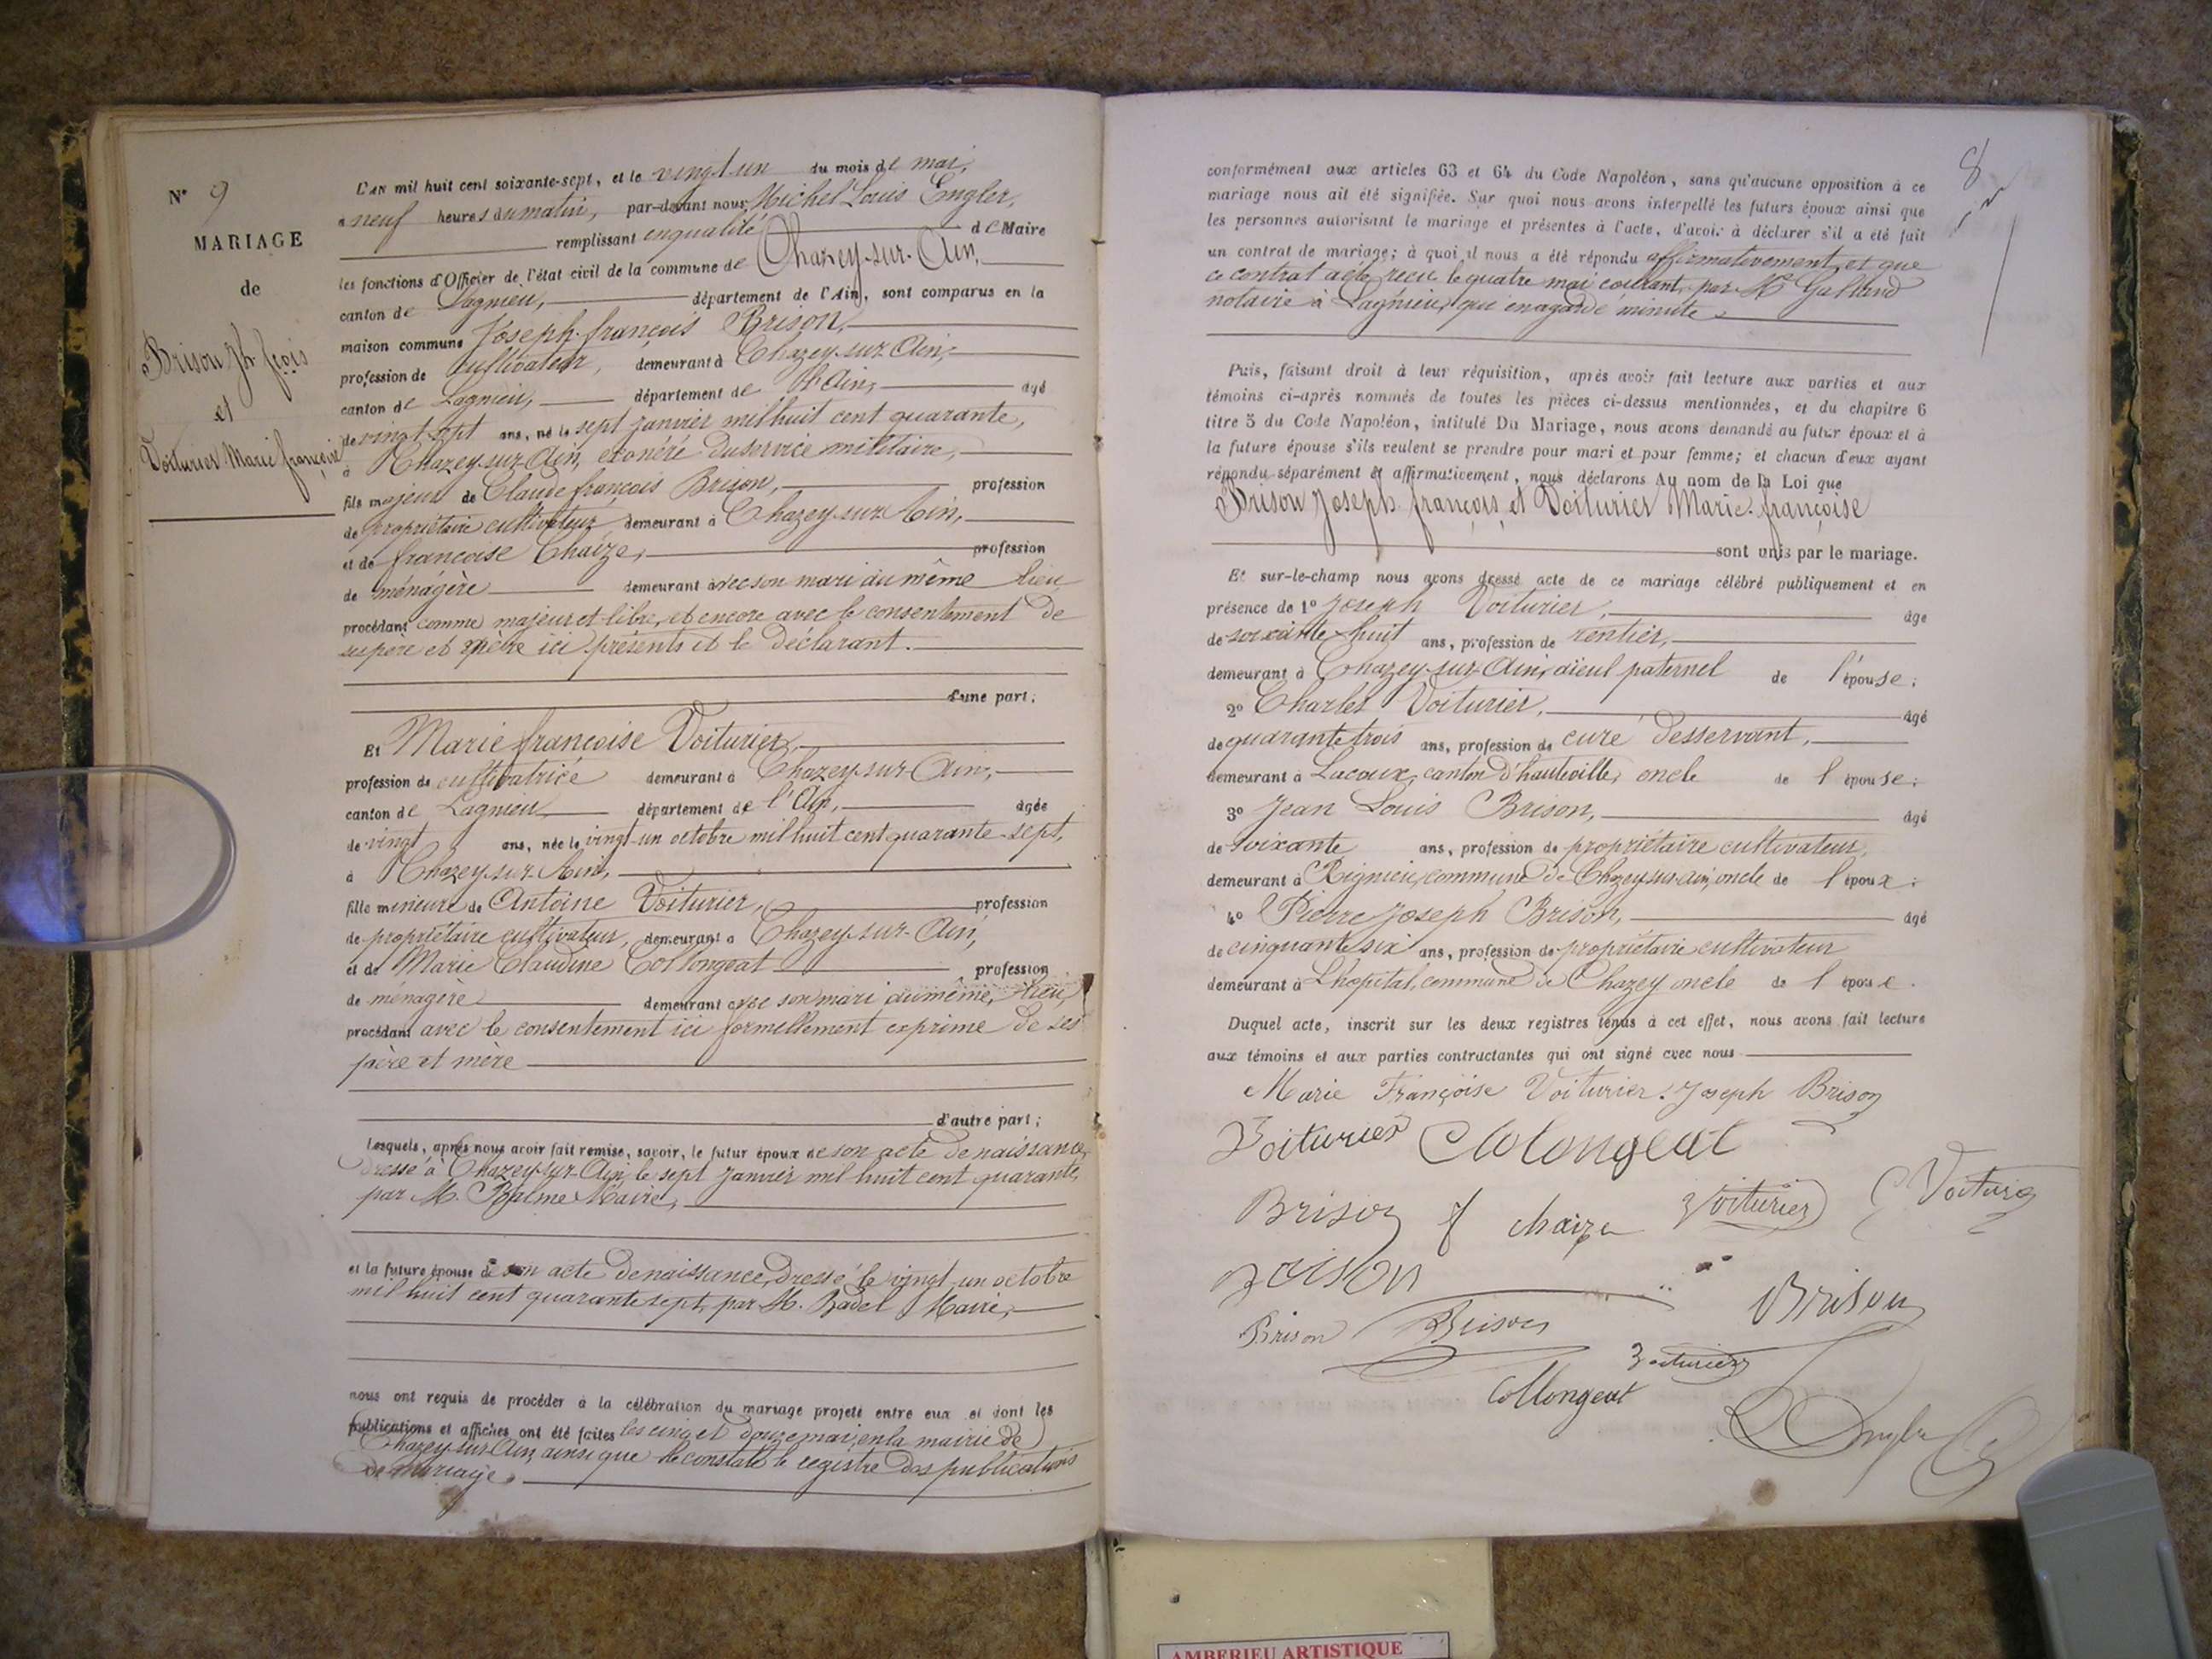 N° 9
MARIAGE
de
Brison Jh fçois
et
Voiturier Marie françoise
L'AN mil huit cent soixante-sept, et le vingt un du mois de mai,
à neuf heures du matin, par-devant nous, Michel Louis Engler,
remplissant en qualité de Maire
les fonctions d'Officier de l'état civil de la commune de Chazey-sur-Ain,
canton de Lagnieu, département de l'Ain, sont comparus en la
maison commune Joseph-françois Brison,
profession de cultivateur, demeurant à Chazey-sur-Ain,
canton de Lagnieu, département de l'Ain, âgé
de vingt sept ans, né le sept janvier mil huit cent quarante,
à Chazey-sur-Ain, exonéré du service militaire,
fils majeur de Claude françois Brison, profession
de propriétaire cultivateur, demeurant à Chazey-sur-Ain,
et de françoise Chaize, profession
de ménagère demeurant avec son mari au même lieu
procédant comme majeur et libre, et encore avec le consentement de
ses père et mère ici présents et le déclarant.
d'une part;
Et Marie françoise Voiturier,
profession de cultivatrice demeurant à Chazey-sur-Ain,
canton de Lagnieu département de l'Ain, âgée
de vingt ans, née le vingt-un octobre mil huit cent quarante-sept,
à Chazey-sur-Ain,
fille mineure de Antoine Voiturier, profession
de propriétaire cultivateur, demeurant à Chazey-sur-Ain,
et de Marie Claudine Collongeat profession
de ménagère demeurant avec son mari au même lieu,
procédant avec le consentement ici formellement exprimé de ses
père et mère
d'autre part;
Lesquels, après nous avoir fait remise, savoir, le futur époux de son acte de naissance
dressé à Chazey-sur-Ain, le sept janvier mil huit cent quarante,
par M. Maire,
et la future épouse de son acte de naissance, dressé le vingt-un octobre
mil huit cent quarante sept, par M. Badel Maire,
nous ont requis de procéder à la célébration du mariage projeté entre eux et dont les
publications et affiches ont été faites les cinq et douze mai, en la mairie de
Chazey-sur-Ain, ainsi que le constate le registre des publications
de mariage.
8
conformément aux articles 63 et 64 du Code Napoléon, sans qu'aucune opposition à ce
mariage nous ait été signifiée. Sur quoi nous avons interpellé les futurs époux ainsi que
les personnes autorisant le mariage et présentes à l'acte, d'avoir à déclarer s'il a été fait
un contrat de mariage; à quoi il nous a été répondu affirmativement, et que
ce contrat a été reçu le quatre mai courant, par Me Galland
notaire à Lagnieu, qui en a gardé minute.
Puis, faisant droit à leur réquisition, après avoir fait lecture aux parties et aux
témoins ci-après nommés de toutes les pièces ci-dessus mentionnées, et du chapitre 6
titre 5 du Code Napoléon, intitulé Du Mariage, nous avons demandé au futur époux et à
la future épouse s'ils veulent se prendre pour mari et pour femme; et chacun d'eux ayant
répondu séparément et affirmativement, nous déclarons Au nom de la Loi que
Brison Joseph françois et Voiturier Marie françoise
sont unis par le mariage.
Et sur-le-champ nous avons dressé acte de ce mariage célébré publiquement et en
présence de 1° Joseph Voiturier, âgé
de soixante-huit ans, profession de rentier,
demeurant à Chazey-sur-Ain, aïeul paternel de l'épouse;
2° Charles Voiturier, âgé
de quarante trois ans, profession de curé desservant,
demeurant à Lacoux, canton d'hauteville, oncle de l'épouse;
3° Jean Louis Brison, âgé
de soixante ans, profession de propriétaire cultivateur,
demeurant à Rignieu, commune de Chazey-sur-Ain, oncle de l'époux;
4° Pierre Joseph Brison, âgé
de cinquante six ans, profession de propriétaire cultivateur
demeurant à Lhopital, commune de Chazey oncle de l'épou
Duquel acte, inscrit sur les deux registres tenus à cet effet, nous avons fait lecture
aux témoins et aux parties contractantes qui ont signé avec nous
Marie Françoise Voiturier. Joseph Brison
Voiturier Colongeat
Brison f chaize Voiturier C Voiturier
Brison
Brison
Brison Brison
Voiturier
Collongeat
L Engler
AMBERIEU ARTISTIQUE